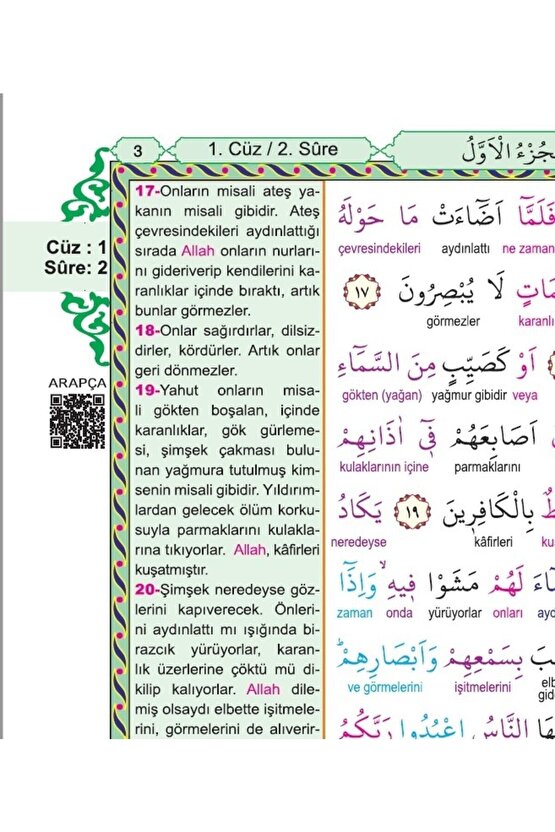 3
1. Cüz / 2. Sûre
اَلْجُزْءُ الْاَوَّلُ
Cüz : 1
Sûre: 2
ARAPÇA
17-Onların misali ateş ya-
kanın misali gibidir. Ateş
çevresindekileri aydınlattığı
sırada Allah onların nurları-
nı gideriverip kendilerini ka-
ranlıklar içinde bıraktı, artık
bunlar görmezler.
18-Onlar sağırdırlar, dilsiz-
dirler, kördürler. Artık onlar
geri dönmezler.
19-Yahut onların misa-
li gökten boşalan, içinde
karanlıklar, gök gürleme-
si, şimşek çakması bulu-
nan yağmura tutulmuş kim-
senin misali gibidir. Yıldırım-
lardan gelecek ölüm korku-
suyla parmaklarını kulakla-
rına tıkıyorlar. Allah, kâfirleri
kuşatmıştır.
20-Şimşek neredeyse göz-
lerini kapıverecek. Önleri-
ni aydınlattı mı ışığında bi-
razcık yürüyorlar, karan-
lık üzerlerine çöktü mü di-
kilip kalıyorlar. Allah dile-
miş olsaydı elbette işitmele-
rini, görmelerini de alıverir-
فَلَمَّٓا اَضَٓاءَتْ مَا حَوْلَهُ
çevresindekileri aydınlattı ne zaman
لَا يُبْصِرُونَ ﴿١٧﴾
görmezler
اَوْ كَصَيِّبٍ مِنَ السَّمَٓاءِ
gökten (yağan) yağmur gibidir veya
اَصَابِعَهُمْ فٖٓي اٰذَانِهِمْ
kulaklarının içine parmaklarını
بِالْكَافِرٖينَ ﴿١٩﴾ يَكَادُ
neredeyse kâfirleri
لَهُمْ مَشَوْا فٖيهِۙ وَاِذَٓا
zaman onda yürüyorlar onları
بِسَمْعِهِمْ وَاَبْصَارِهِمْ
ve görmelerini işitmelerini
النَّاسُ اعْبُدُوا رَبَّكُمُ